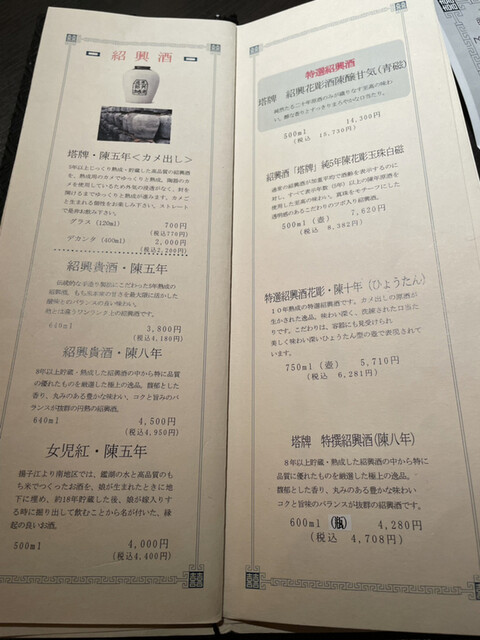 紹興酒
塔牌・陳五年＜カメ出し＞
5年以上じっくり熟成・貯蔵した高品質の紹興酒
を、熟成用のカメでゆっくりと熟成。陶器のカ
メを使用しているため外気の浸透がなく、封を
開けるまでゆっくりと熟成が進みます。カメご
と生まれる個性をお楽しみ下さい。ストレート
で是非お飲み下さい。
グラス (120ml) 700円
(税込770円)
デカンタ (400ml) 2,000円
(税込2,200円)
紹興貴酒・陳五年
640ml 3,800円
(税込4,180円)
紹興貴酒・陳八年
8年以上貯蔵・熟成した紹興酒の中から特に品質
の優れたものを厳選した極上の逸品。馥郁とした
香り、丸みのある豊かな味わい、コクと旨みのバ
ランスが抜群の円熟の紹興酒。
640ml 4,500円
(税込4,950円)
女児紅・陳五年
揚子江より南地区では、鑑湖の水と高品質のも
ち米でつくったお酒を、娘が生まれたときに地
下に埋め、約18年貯蔵した後、娘が嫁入りす
る時に掘り出して飲むことから名が付いた、縁
起の良いお酒。
500ml 4,000円
(税込4,400円)
特選紹興酒
塔牌 紹興花彫酒陳醸甘気(青磁)
500ml 14,300円
(税込 15,730円)
紹興酒「塔牌」純5年陳花彫玉珠白磁
通常の紹興酒が加重平均で酒齢を表示するのに
対し、すべて表示年数（5年）以上の陳年原酒を
使用した至高の味わい。真珠をモチーフにした
透明感のあるこだわりのツボ入り紹興酒。
500ml (壺) 7,620円
(税込 8,382円)
特選紹興酒花彫・陳十年（ひょうたん）
１０年熟成の特選紹興酒です。カメ出しの原酒が
生かされた逸品。味わい深く、洗練された口当た
りです。こだわりは、容器にも見受けられ
美しく味わい深いひょうたん型の壺で表現されて
います。
750ml (壺) 5,710円
(税込 6,281円)
塔牌 特撰紹興酒(陳八年)
８年以上貯蔵・熟成した紹興酒の中から特に
品質に優れたものを厳選した極上の逸品。
馥郁とした香り、丸みのある豊かな味わい
コクと旨味のバランスが抜群の紹興酒です。
600ml (瓶) 4,280円
(税込 4,708円)